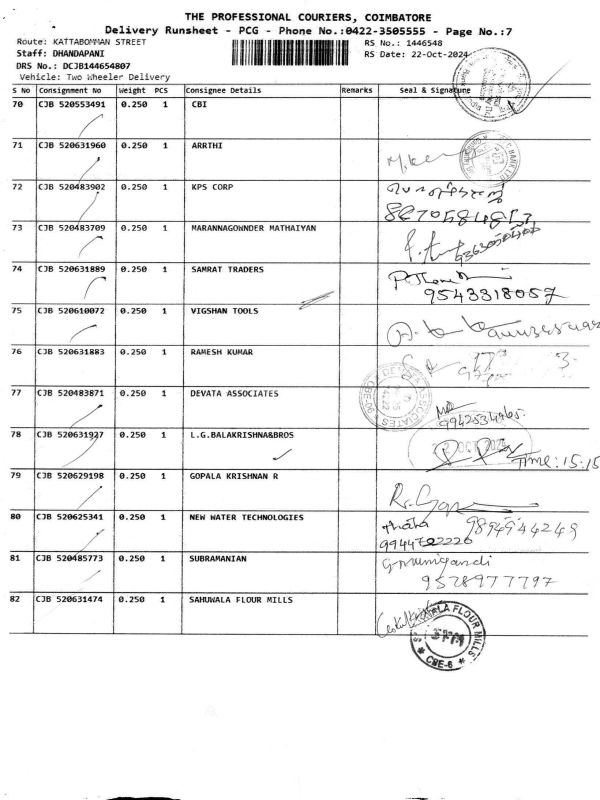 THE PROFESSIONAL COURIERS, COIMBATORE
Delivery Runsheet - PCG - Phone No.:0422-3505555 - Page No.:7
Route: KATTABOMMAN STREET RS No.: 1446548
Staff: DHANDAPANI RS Date: 22-Oct-2024
DRS No.: DCJB144654807
Vehicle: Two Wheeler Delivery
S No Consignment No Weight PCS Consignee Details Remarks Seal & Signature
70 CJB 520553491 0.250 1 CBI
71 CJB 520631960 0.250 1 ARRTHI
72 CJB 520483902 0.250 1 KPS CORP
73 CJB 520483709 0.250 1 MARANNAGOWNDER MATHAIYAN
74 CJB 520631889 0.250 1 SAMRAT TRADERS
9543318057
75 CJB 520610072 0.250 1 VIGSHAN TOOLS
76 CJB 520631883 0.250 1 RAMESH KUMAR
77 CJB 520483871 0.250 1 DEVATA ASSOCIATES
9942534965
78 CJB 520631927 0.250 1 L.G.BALAKRISHNA&BROS
Time: 15:15
79 CJB 520629198 0.250 1 GOPALA KRISHNAN R
80 CJB 520625341 0.250 1 NEW WATER TECHNOLOGIES
9894944249
81 CJB 520485773 0.250 1 SUBRAMANIAN
9528977797
82 CJB 520631474 0.250 1 SAHUWALA FLOUR MILLS
FLOUR MILLS
CBE-6